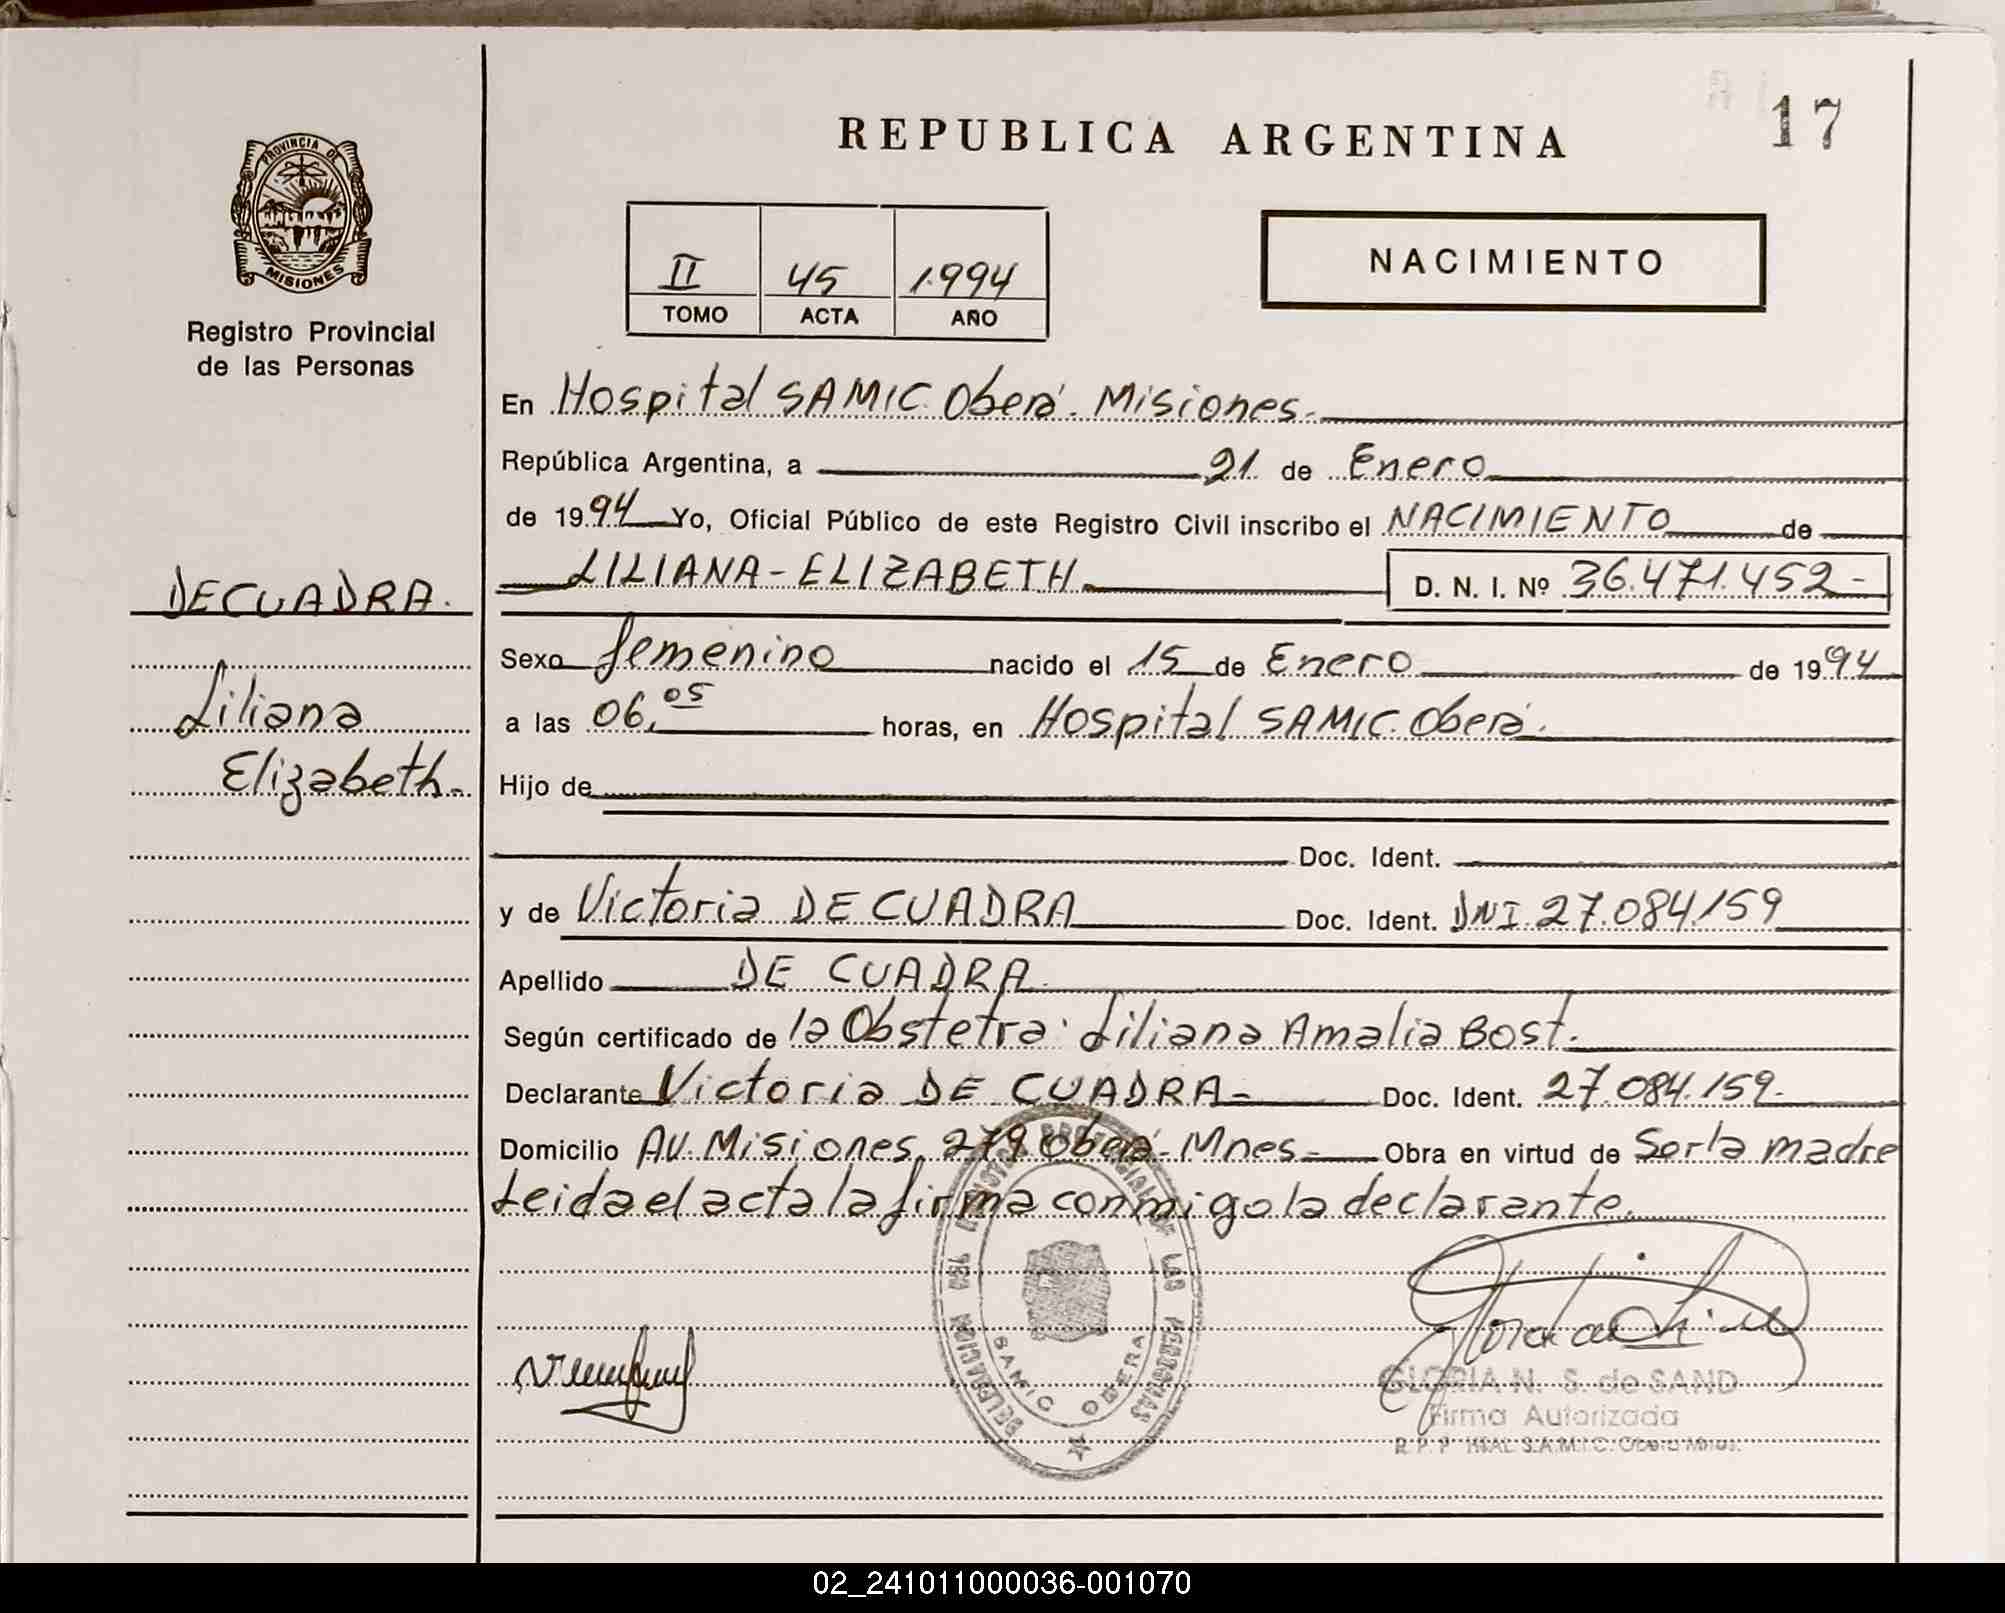 REPUBLICA ARGENTINA
17
PROVINCIA DE
MISIONES
Registro Provincial
de las Personas
II 45 1.994
TOMO ACTA AÑO
NACIMIENTO
En Hospital SAMIC. Oberá. Misiones.
República Argentina, a 21 de Enero
de 1994 Yo, Oficial Público de este Registro Civil inscribo el NACIMIENTO de
LILIANA-ELIZABETH. D. N. I. Nº 36.471.452-
DECUADRA.
Liliana
Elizabeth.
Sexo femenino nacido el 15 de Enero de 1994
a las 06,05 horas, en Hospital SAMIC. Oberá.
Hijo de
Doc. Ident.
y de Victoria DE CUADRA Doc. Ident. DNI. 27.084.159
Apellido DE CUADRA.
Según certificado de la Obstetra: Liliana Amalia Bost.
Declarante Victoria DE CUADRA- Doc. Ident. 27.084.159.
Domicilio AV. Misiones. 279 Oberá-Mnes- Obra en virtud de Ser la madre
Leida el acta la firma conmigo la declarante.
DELEGACION DEL REGISTRO PROVINCIAL DE LAS PERSONAS
SAMIC OBERA
GLORIA N. S. de SAND
Firma Autorizada
R. P. P. HSAL S.A.M.I.C. Oberá Mnes.
02_241011000036-001070